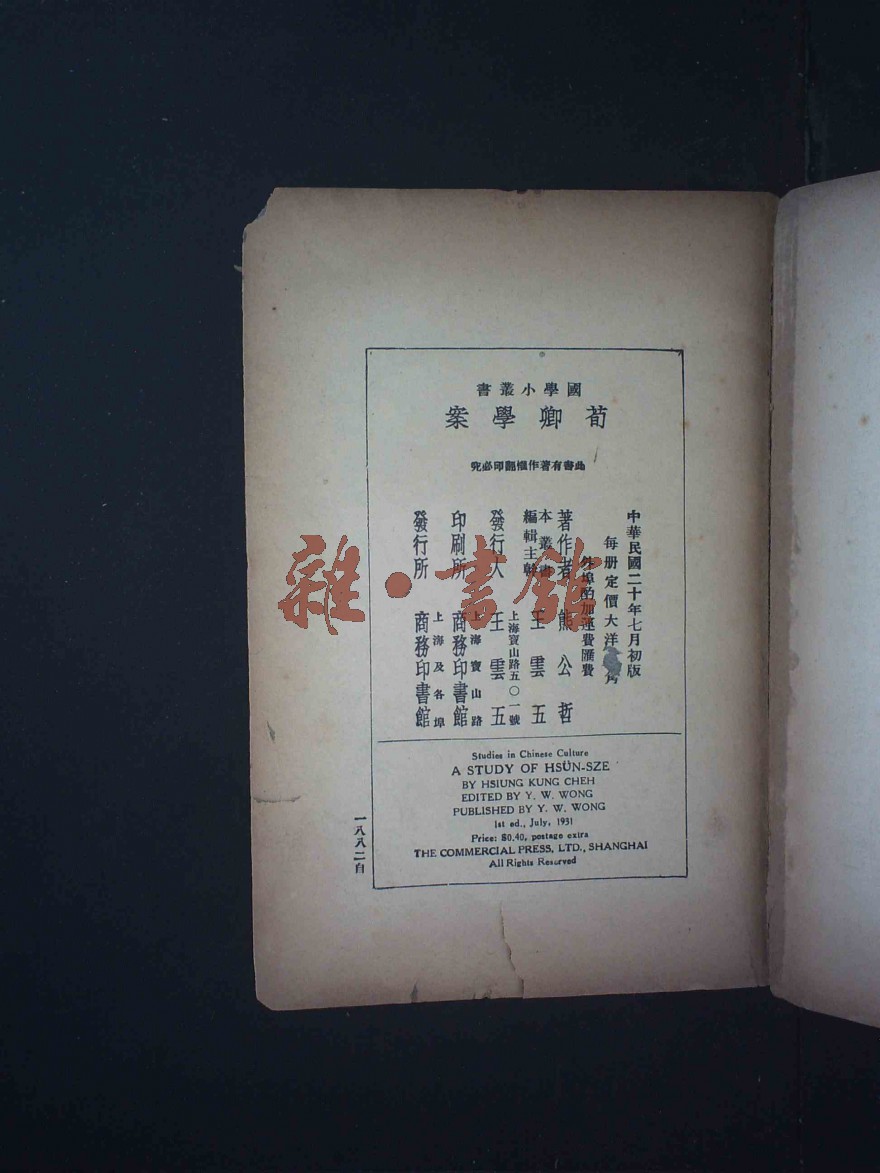 國學小叢書
荀卿學案
此書有著作權翻印必究
中華民國二十年七月初版
每册定價大洋角
外埠酌加運費匯費
著作者 熊公哲
本叢書編輯主幹 王雲五
發行人 王雲五
上海寶山路五〇一號
印刷所 商務印書館
上海寶山路
發行所 商務印書館
上海及各埠
Studies in Chinese Culture
A STUDY OF HSÜN-SZE
BY HSIUNG KUNG CHEH
EDITED BY Y. W. WONG
PUBLISHED BY Y. W. WONG
1st ed., July, 1931
Price: $0.40, postage extra
THE COMMERCIAL PRESS, LTD., SHANGHAI
All Rights Reserved
一八八二自
雜·書館